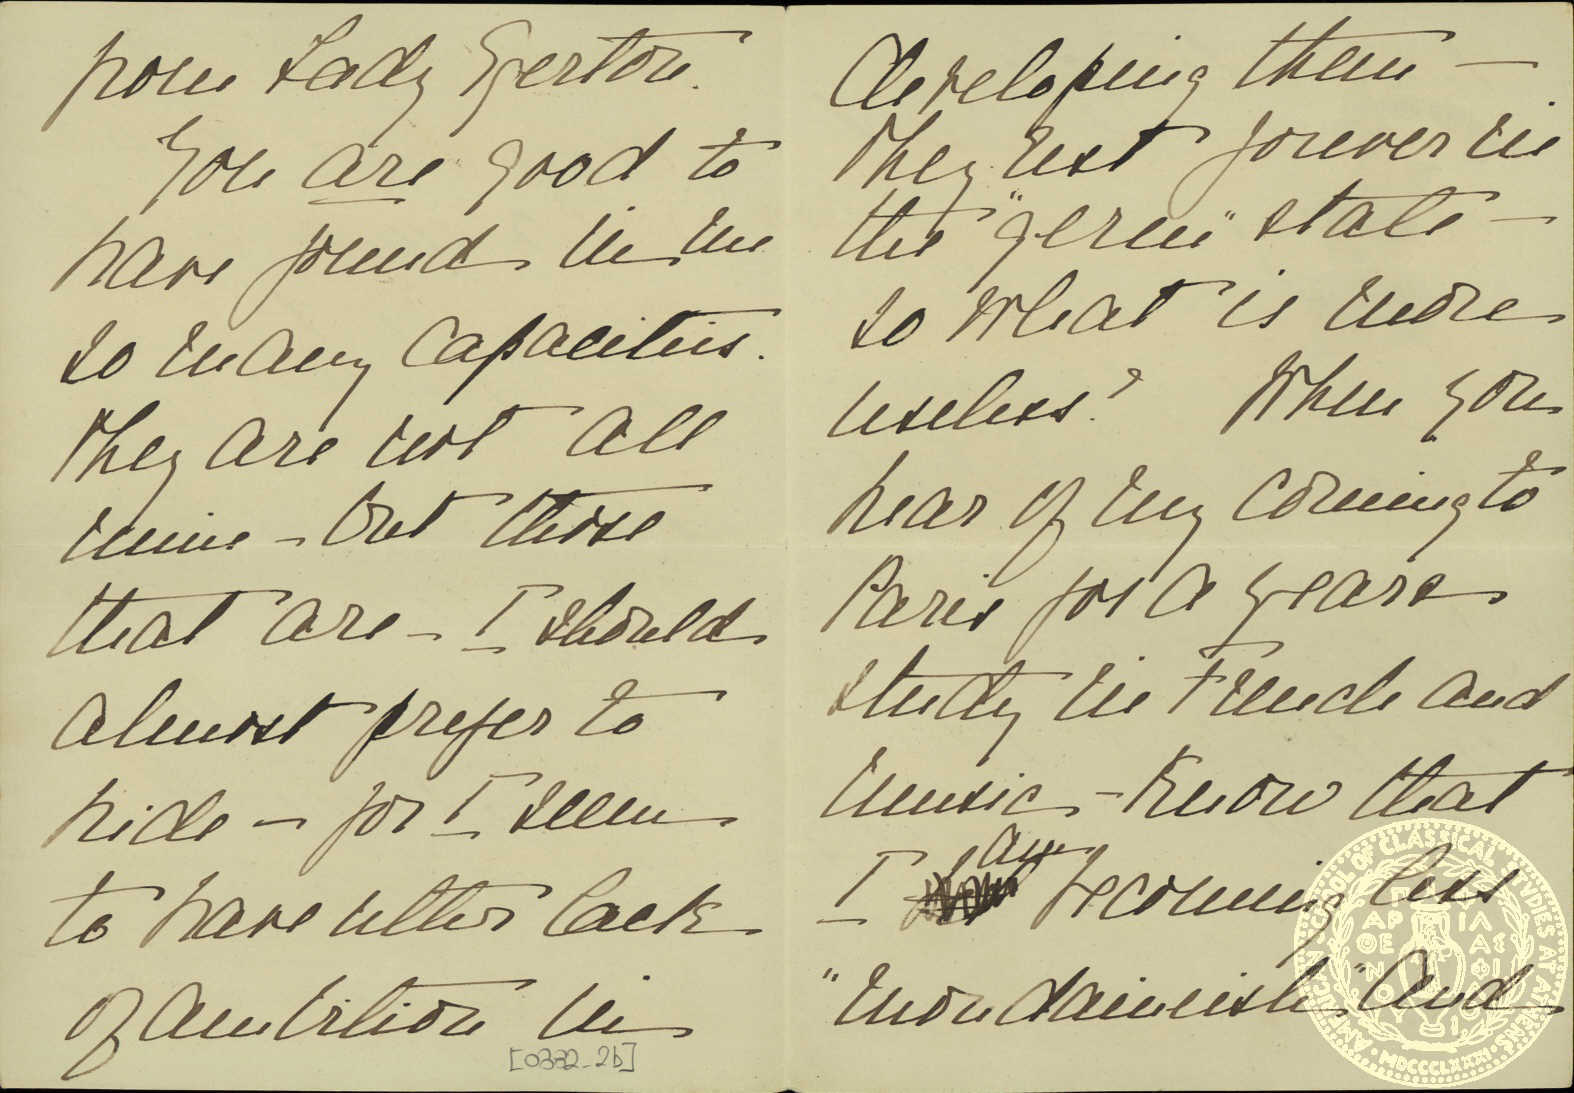 from Lady Egerton.
You are good to
have found in me
so many capacities.
They are not all
mine – but those
that are – I should
almost prefer to
hide – for I seem
to have utter lack
of ambition in
[0332_2b]
developing them –
They rest forever in
the "germ" state –
so what is more
useless? When you
hear of my coming to
Paris for a years
study in French and
music – Know that
am
I becoming less
"mondainish" and
AMERICAN SCHOOL OF CLASSICAL STVDIES AT ATHENS
ΠΑΡΘΕΝΟΥ ΦΙΛΑΣ
MDCCCLXXXI